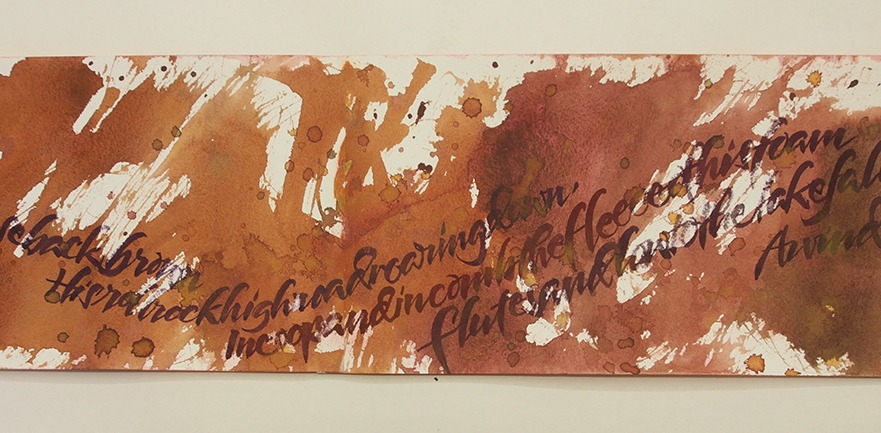 seback brown
His rollrock highroad roaring down,
In coop and in comb the fleece of his foam
flutes and low to the lake fal
A wind